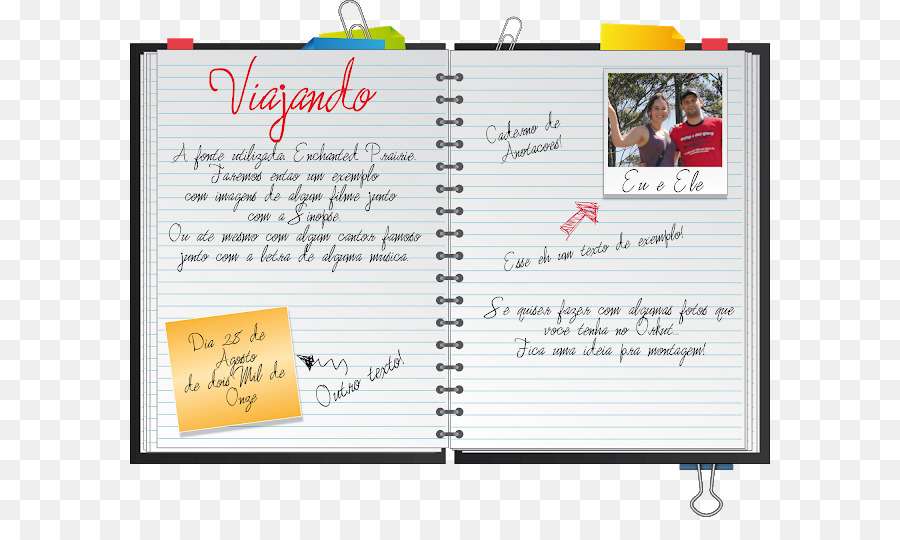 Viajando
A fonte utilizada Enchanted Prairie.
Faremos entao um exemplo
com imagens de algum filme junto
com a Sinopse.
Ou ate mesmo com algum cantor famoso
junto com a letra de alguma musica.
Dia 28 de
Agosto
de dois Mil de
Onze
Outro texto!
Caderno de
Anotacoes!
Eu e Ele
Esse eh um texto de exemplo!
Se quiser fazer com algumas fotos que
voce tenha no Orkut...
Fica uma ideia pra montagem!